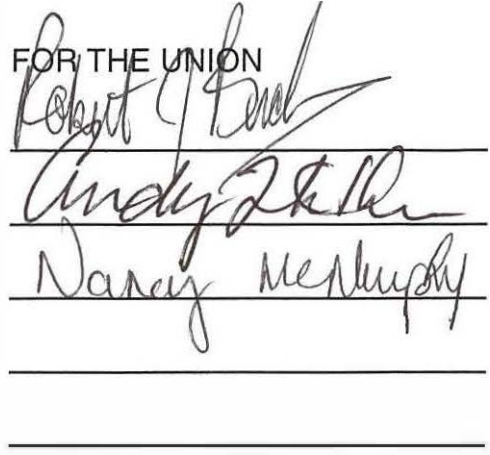 FOR THE UNION
Robert J
Andy
Nancy McNumphy